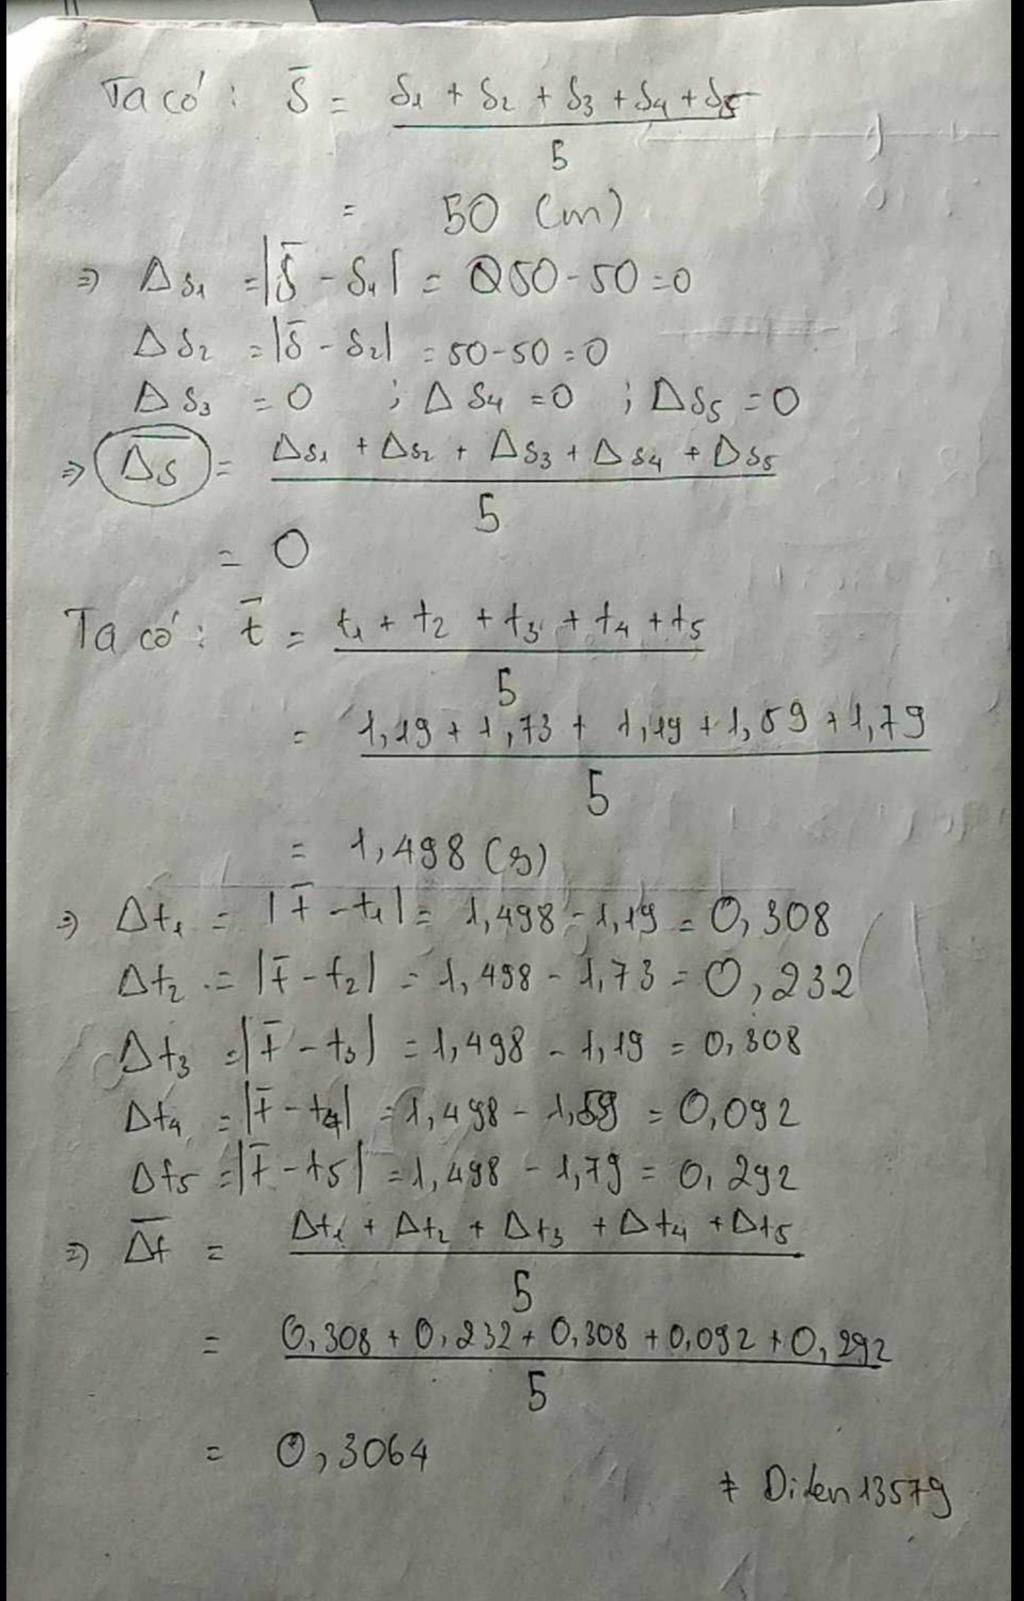 Ta có: S̄ = S1 + S2 + S3 + S4 + S5
5
= 50 (m)
⇒ ΔS1 = |S̄ - S1| = 50 - 50 = 0
ΔS2 = |S̄ - S2| = 50 - 50 = 0
ΔS3 = 0 ; ΔS4 = 0 ; ΔS5 = 0
⇒ Δ̅S̅ = ΔS1 + ΔS2 + ΔS3 + ΔS4 + ΔS5
5
= 0
Ta có: t̄ = t1 + t2 + t3 + t4 + t5
5
= 1,19 + 1,73 + 1,19 + 1,59 + 1,79
5
= 1,498 (s)
⇒ Δt1 = |t̄ - t1| = 1,498 - 1,19 = 0,308
Δt2 = |t̄ - t2| = 1,498 - 1,73 = 0,232
Δt3 = |t̄ - t3| = 1,498 - 1,19 = 0,308
Δt4 = |t̄ - t4| = 1,498 - 1,59 = 0,092
Δt5 = |t̄ - t5| = 1,498 - 1,79 = 0,292
⇒ Δ̅t̅ = Δt1 + Δt2 + Δt3 + Δt4 + Δt5
5
= 0,308 + 0,232 + 0,308 + 0,092 + 0,292
5
= 0,3064
13579